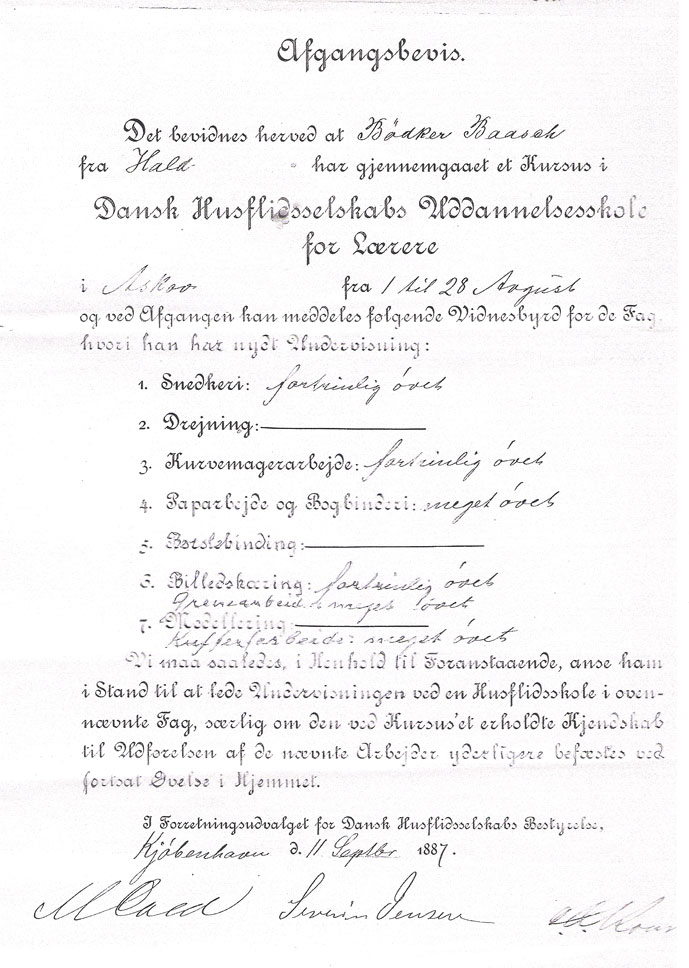 Afgangsbevis.
Det bevidnes herved at Bödker Baasch
fra Hald har gjennemgaaet et Kursus i
Dansk Husflidsselskabs Uddannelsesskole
for Lærere
i Askov fra 1 til 28 August
og ved Afgangen kan meddeles følgende Vidnesbyrd for de Fag,
hvori han har nydt Undervisning:
1. Snedkeri: fortrinlig óvet
2. Drejning:
3. Kurvemagerarbejde: fortrinlig óvet
4. Paparbejde og Bogbinderi: meget óvet
5. Børstebinding:
6. Billedskæring: fortrinlig óvet
Grenearbeid: meget óvet
7. Modellering:
Kufferfarbeider meget óvet
Vi maa saaledes, i Henhold til Foranstaaende, anse ham
i Stand til at lede Undervisningen ved en Husflidsskole i oven-
nævnte Fag, særlig om den ved Kursus'et erholdte Kjendskab
til Udførelsen af de nævnte Arbejder yderligere befæstes ved
fortsat Øvelse i Hjemmet.
I Forretningsudvalget for Dansk Husflidsselskabs Bestyrelse,
Kjóbenhavn d. 11 Septbr 1887.
Severin Jensen